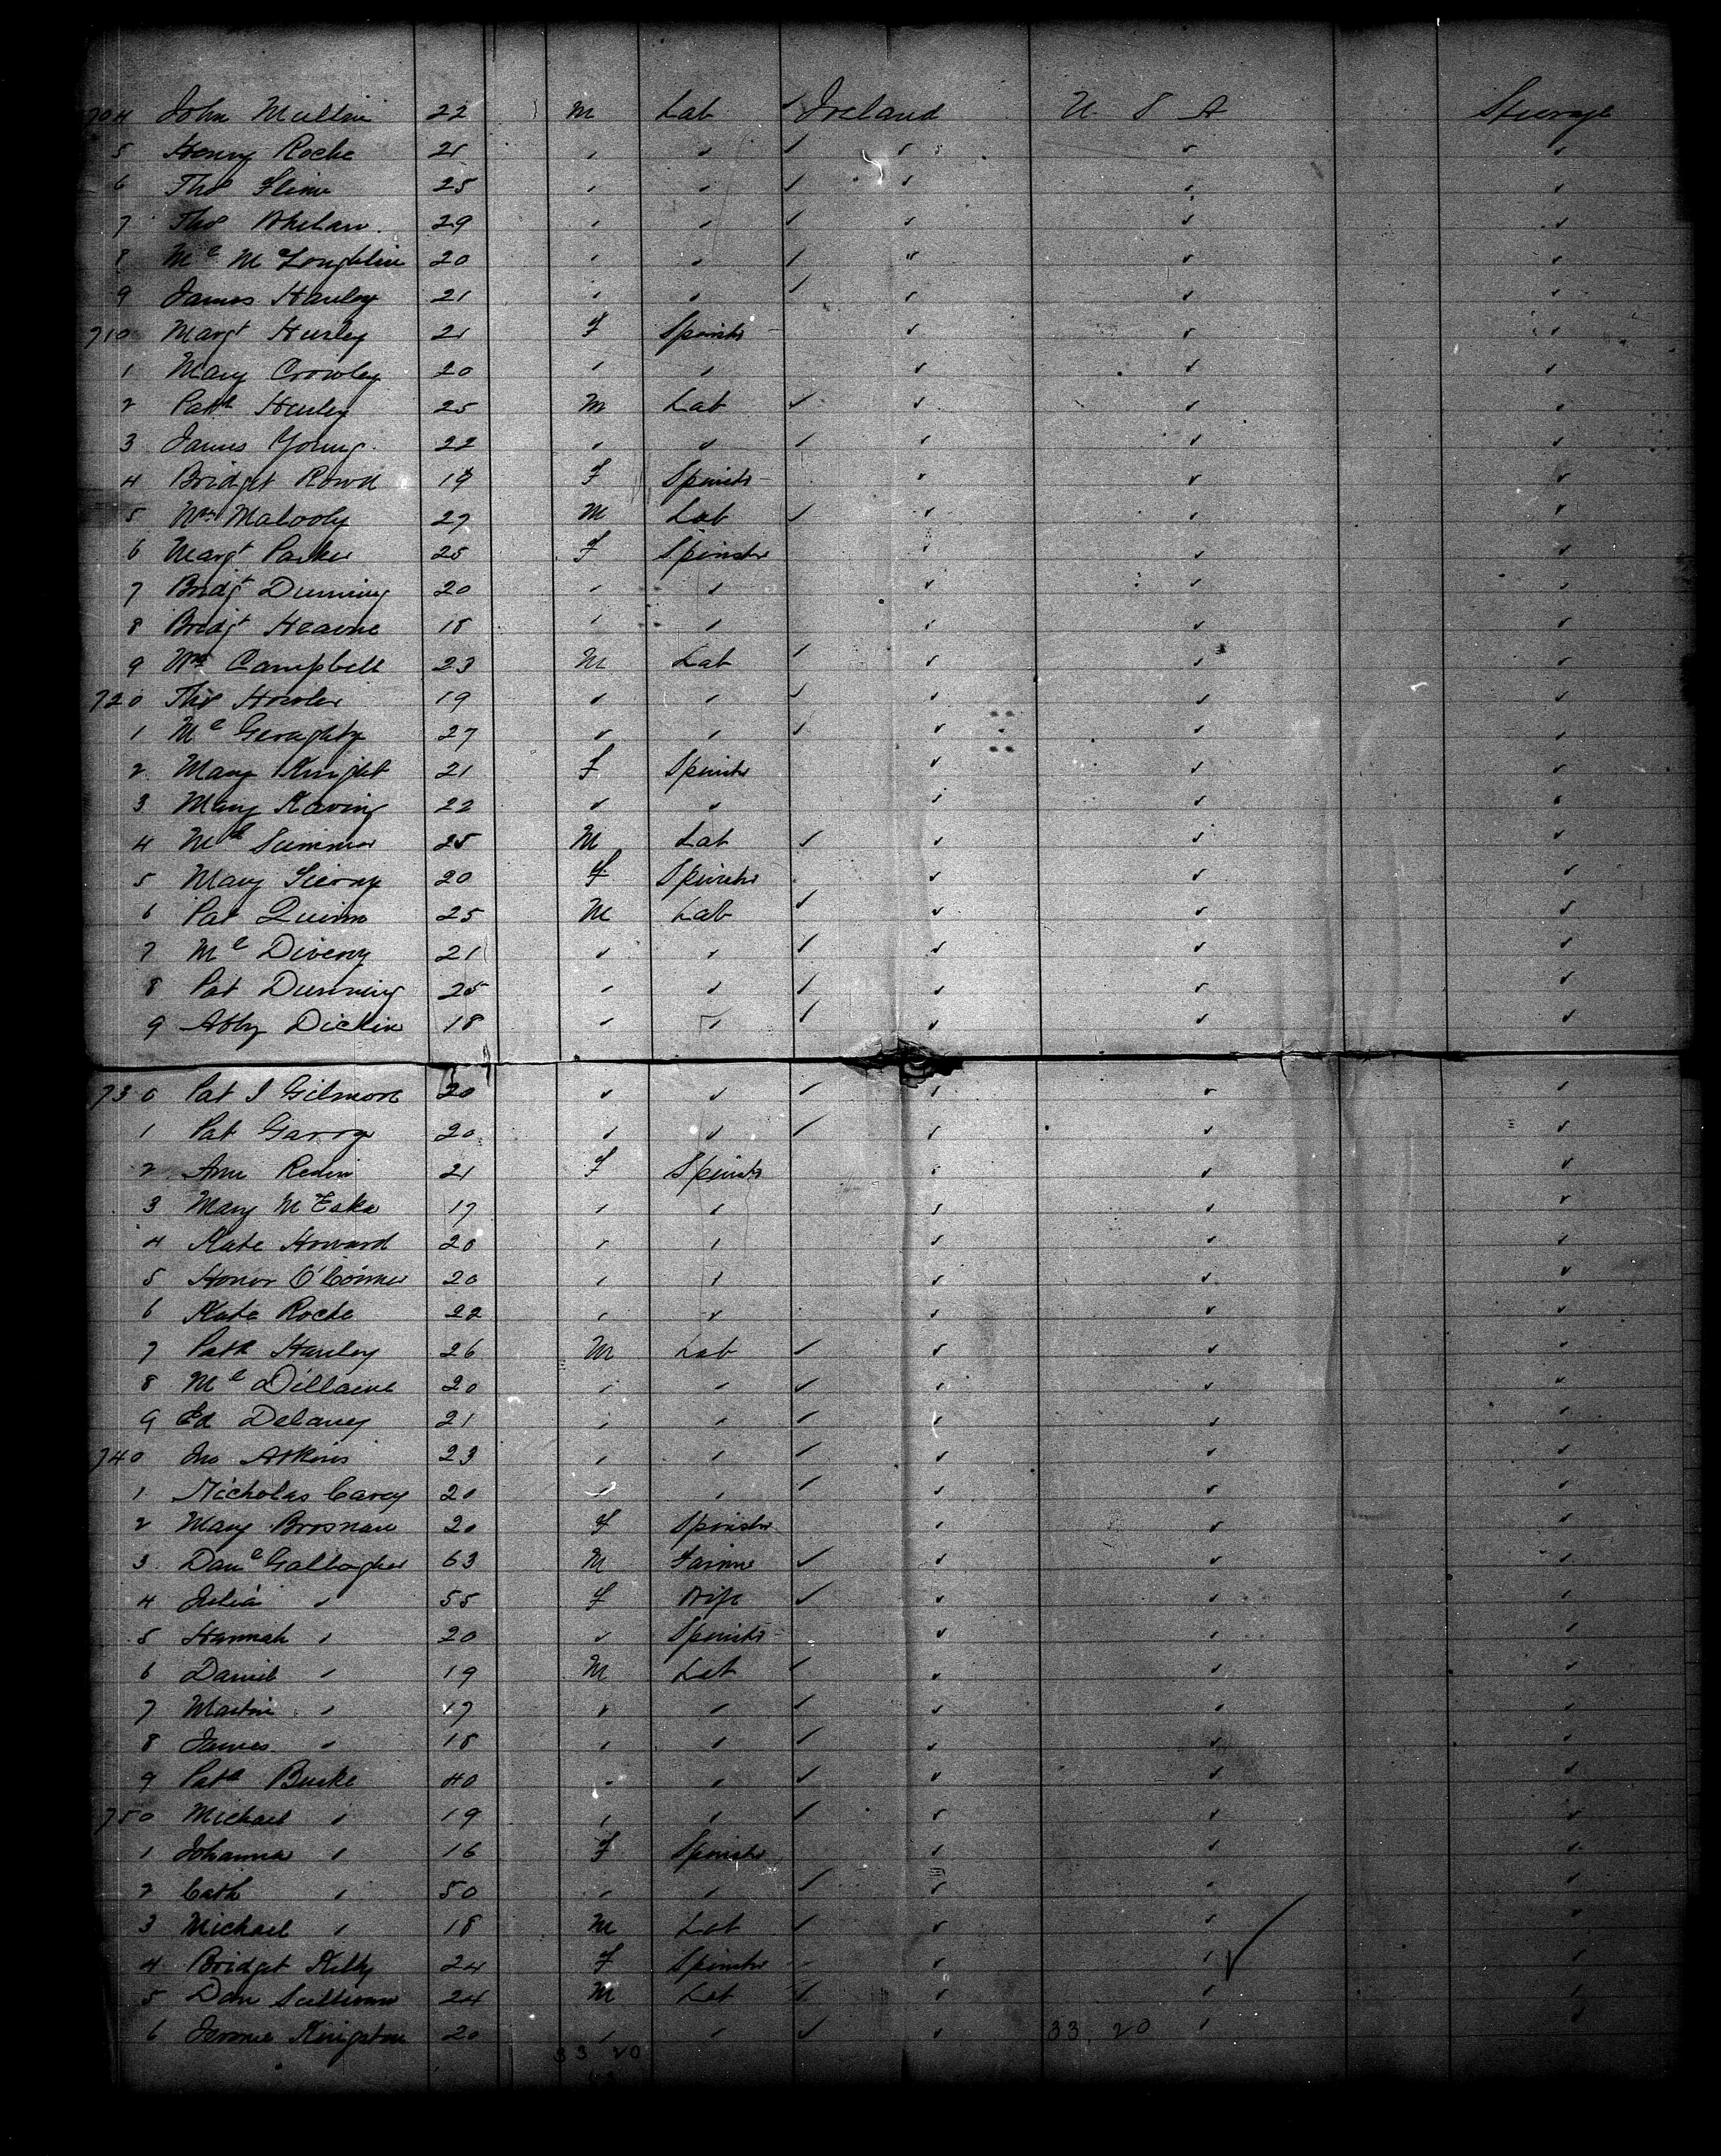 704 John Mullin 22 M Lab Ireland U. S A Steerage
5 Henry Roche 21 " " " " "
6 Thos Flinn 25 " " " " "
7 Thos Whelan 29 " " " " "
8 Ml McLoughlin 20 " " " " "
9 James Hanley 21 " " " " "
710 Margt Hurley 21 F Spinstr " " "
1 Mary Crowley 20 " " " " "
2 Patk Hurley 25 M Lab " " "
3 James Young 22 " " " " "
4 Bridget Rowd 19 F Spinstr " " "
5 Wm Malooly 27 M Lab " " "
6 Margt Parker 25 F Spinstr " " "
7 Bridgt Dunning 20 " " " " "
8 Bridgt Hearne 18 " " " " "
9 Wm Campbell 23 M Lab " " "
720 Thos 19 " " " " "
1 Ml Geraghty 27 " " " " "
2 Mary Knight 21 F Spinstr " " "
3 Mary Kaving 22 " " " " "
4 Ml Summer 25 M Lab " " "
5 Mary 20 F Spinstr " " "
6 Pat Quinn 25 M Lab " " "
7 Ml Diveny 21 " " " " "
8 Pat Dunning 25 " " " " "
9 Abby Dickin 18 " " " " "
730 Pat J Gilmore 20 " " " " "
1 Pat Garry 20 " " " " "
2 Ann Redin 21 F Spinstr " " "
3 Mary 17 " " " " "
4 Kate Howard 20 " " " " "
5 Honor O'Connor 20 " " " " "
6 Kate Roche 22 " " " " "
7 Patk Hanley 26 M Lab " " "
8 Ml Dillaine 20 " " " " "
9 Ed Delaney 21 " " " " "
740 Jno Atkins 23 " " " " "
1 Nicholas Carey 20 " " " " "
2 Mary Brosnan 20 F Spinstr " " "
3 Danl Gallagher 63 M Farmr " " "
4 Julia " 55 F Wife " " "
5 Hannah " 20 " Spinstr " " "
6 Daniel " 19 M Lab " " "
7 Martin " 17 " " " " "
8 James " 18 " " " " "
9 Patk Burke 40 " " " " "
750 Michael " 19 " " " " "
1 Johanna " 16 F Spinstr " " "
2 Cath " 50 " " " " "
3 Michael " 18 M Lab " " "
4 Bridget Kelly 24 F Spinstr " " "
5 Dan Sullivan 24 M Lab " " "
6 Jerome Kingston 20 " " " " "
33 20 33. 20